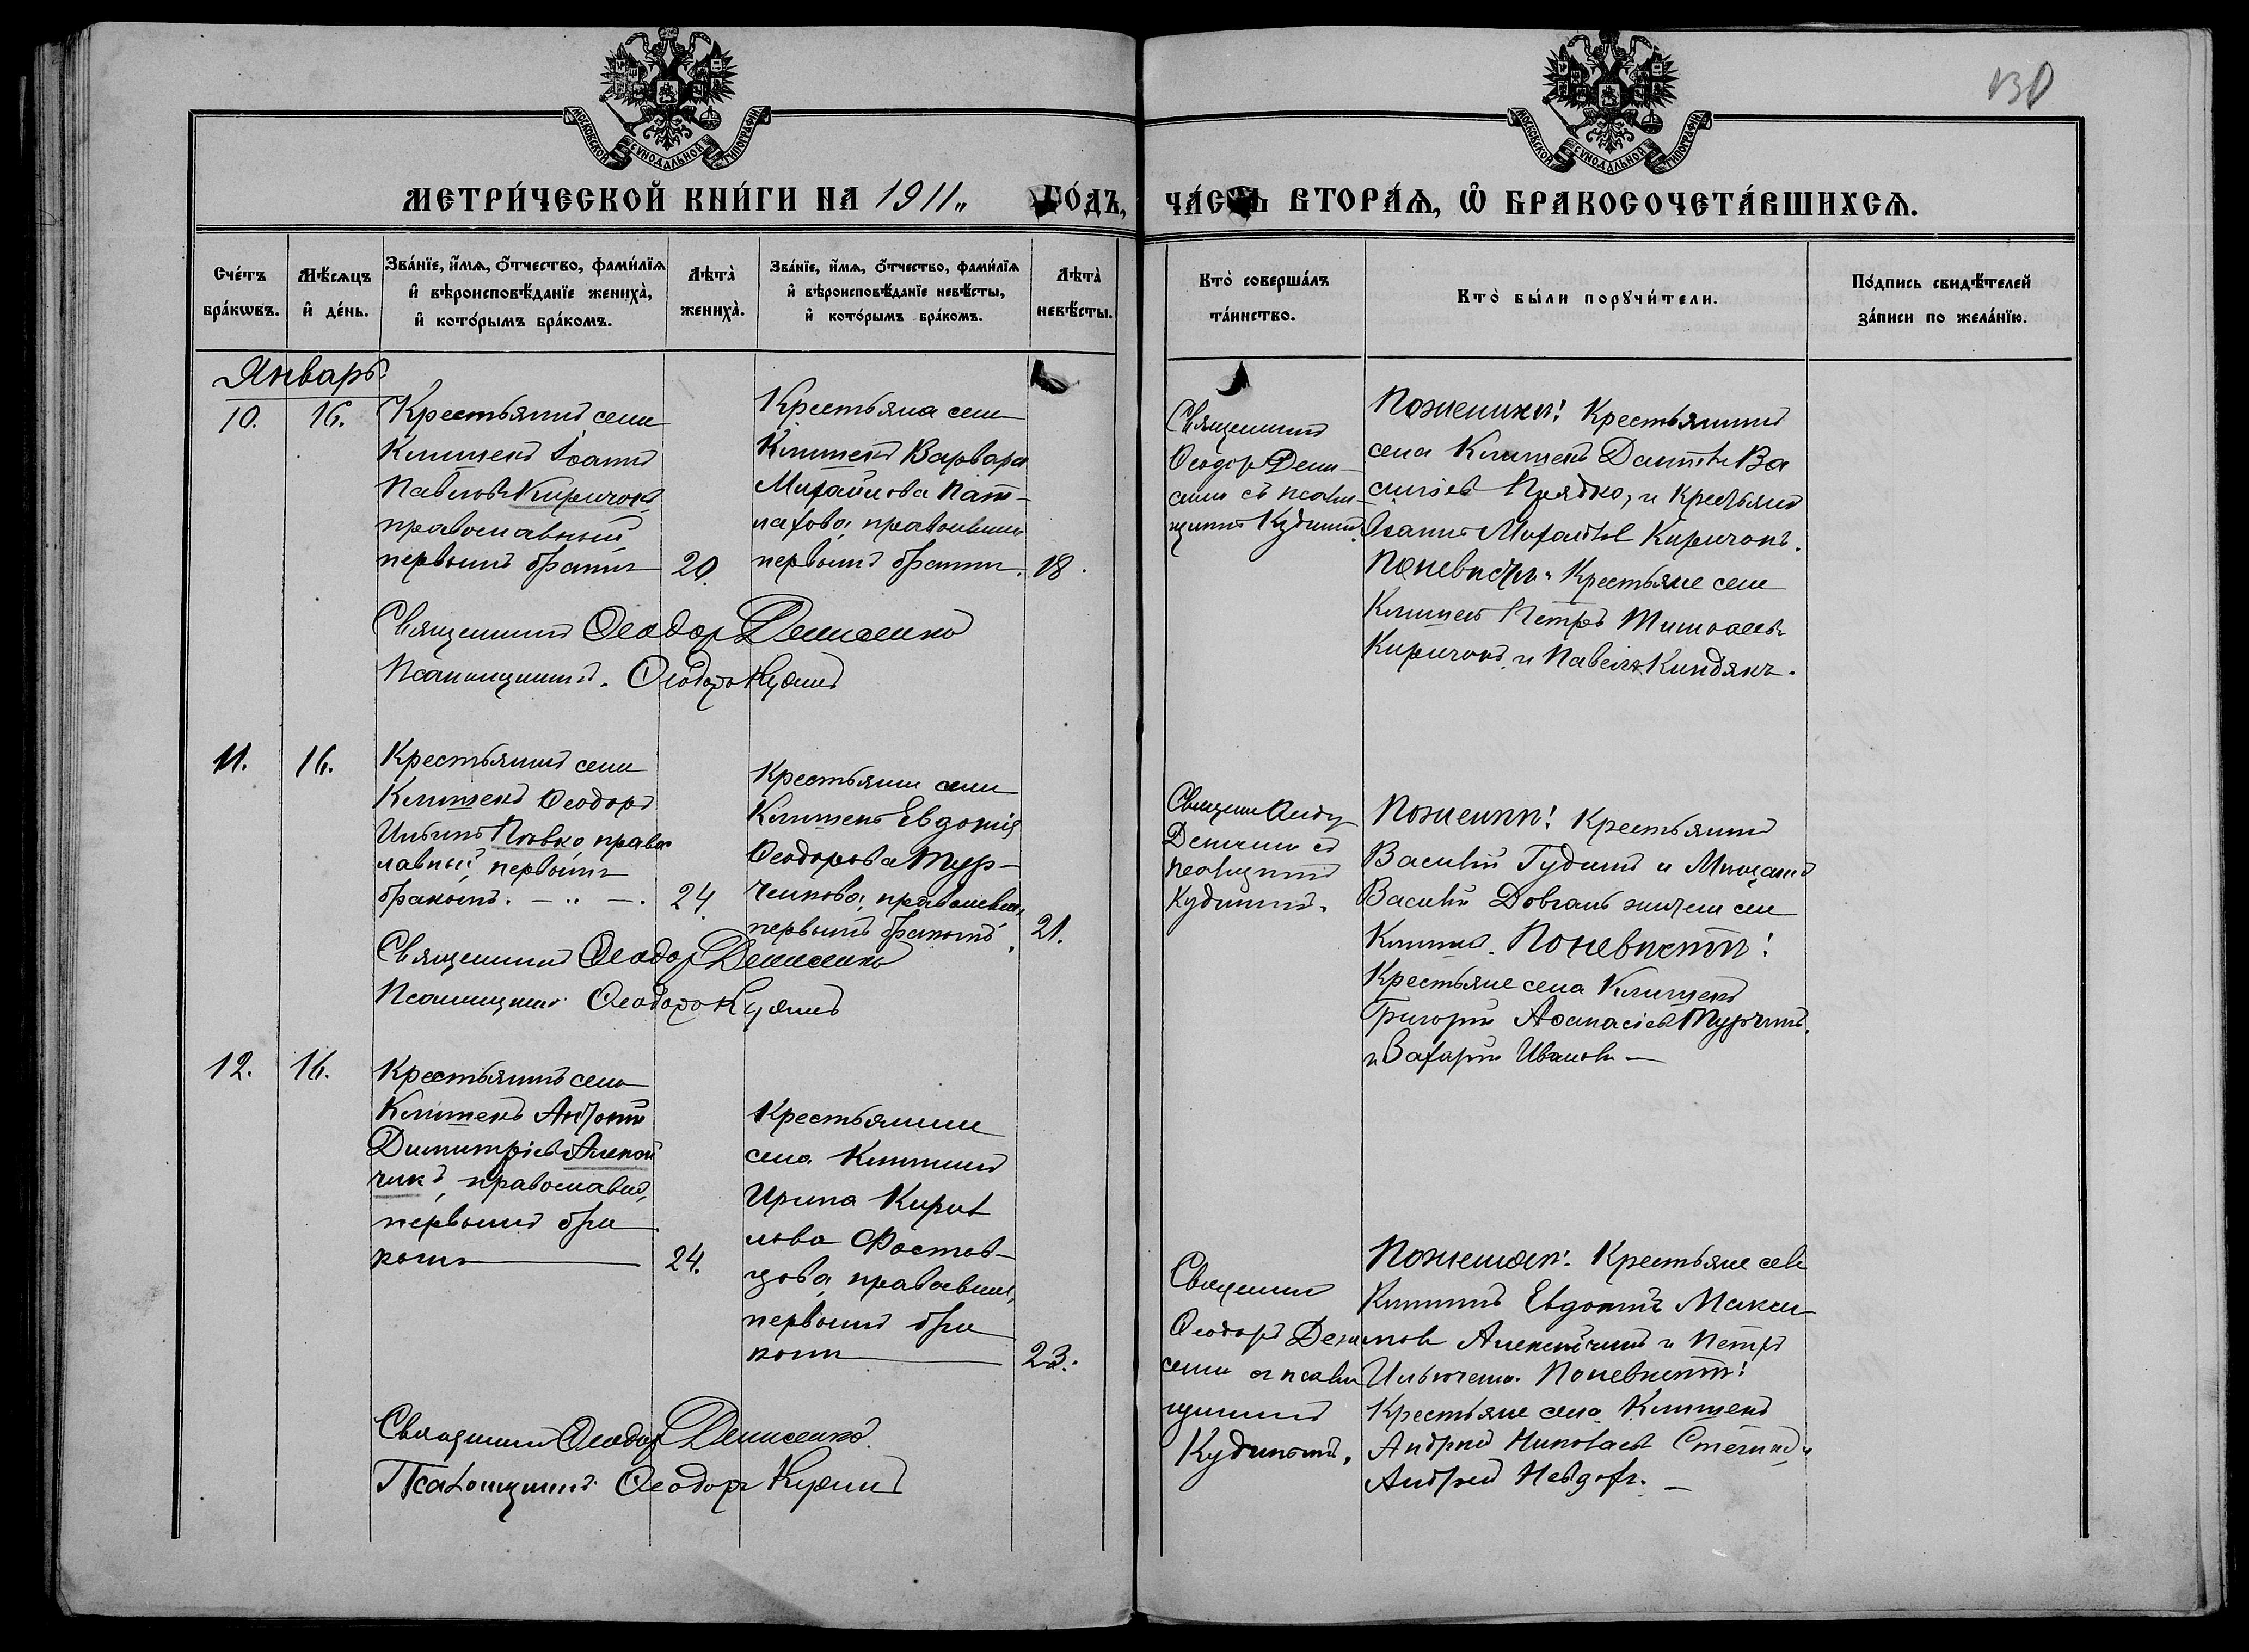 130
МОСКОВСКОЙ СУНОДАЛЬНОЙ ТИПОГРАФIИ
МОСКОВСКОЙ СУНОДАЛЬНОЙ ТИПОГРАФIИ
МЕТРИ́ЧЕСКОЙ КНИ́ГИ НА 1911 ГО́ДЪ,
ЧА́СТЬ ВТОРА́Ѧ, Ѽ БРАКОСОЧЕТА́ВШИХСѦ.
Сче́тъ бра́кѡвъ.
Мѣ́сяцъ и҆ де́нь.
Зва́нїе, и҆́мѧ, ѻ҆́тчество, фами́лїѧ
и҆ вѣроисповѣ́данїе жениха̀,
и҆ кото́рымъ бра́комъ.
Лѣта̀ жениха̀.
Зва́нїе, и҆́мѧ, ѻ҆́тчество, фами́лїѧ
и҆ вѣроисповѣ́данїе невѣ́сты,
и҆ кото́рымъ бра́комъ.
Лѣта̀ невѣ́сты.
Кто̀ соверша́лъ
та́инство.
Кто̀ бы́ли порꙋчи́тели.
По́дпись свидѣ́телей
за́писи по жела́нїю.
Январь
10.
16.
Крестьянинъ села
Клишекъ Іоаннъ
Павловъ Киричокъ
православный
первымъ бракомъ
20.
Крестьянка села
Клишекъ Варвара
Михайлова Пат-
лахова, православная
первымъ бракомъ.
18.
Священникъ
Ѳеодоръ Дени-
сенко съ псалом-
щикомъ Кудинымъ.
По женихѣ: Крестьянинъ
села Клишекъ Даніилъ Ва
сильевъ Прядко, и крестьянинъ
Іоаннъ Михайловъ Киричокъ.
По невѣстѣ: Крестьяне села
Клишекъ Петръ Тимоѳеевъ
Киричокъ и Павелъ Киндякъ.
Священникъ Ѳеодоръ Денисенко
Псаломщикъ Ѳеодоръ Кудинъ
11.
16.
Крестьянинъ села
Клишекъ Ѳеодоръ
Ильинъ Пивко, правос
лавный, первымъ
бракомъ.
24.
Крестьянка села
Клишекъ Евдокія
Ѳеодорова Тур-
чинова, православная,
первымъ бракомъ.
21.
Священникъ Ѳеодоръ
Денисенко съ
псаломщикомъ
Кудинымъ.
По женихѣ: Крестьянинъ
Василій Гудимъ и Мѣщанинъ
Василій Довгань жители села
Клишекъ. По невѣстѣ:
Крестьяне села Клишекъ
Григорій Аѳанасіевъ Турчинъ
и Захарій Ивановъ
Священникъ Ѳеодоръ Денисенко
Псаломщикъ Ѳеодоръ Кудинъ
12.
16.
Крестьянинъ села
Клишекъ Антоній
Димитріевъ Алексей
чикъ, православный,
первымъ бра
комъ
24.
Крестьянка
села Клишекъ
Ирина Кирил
лова Фостов-
цова, православная,
первымъ бра
комъ
23.
Священникъ
Ѳеодоръ Дени
сенко съ псалом
щикомъ
Кудинымъ.
По женихѣ: Крестьяне села
Клишекъ Евдокимъ Макси
мовъ Алексейчикъ и Петръ
Ильюченко. По невѣстѣ:
Крестьяне села Клишекъ
Андрей Николаевъ и
Андрей
Священникъ Ѳеодоръ Денисенко.
Псаломщикъ Ѳеодоръ Кудинъ